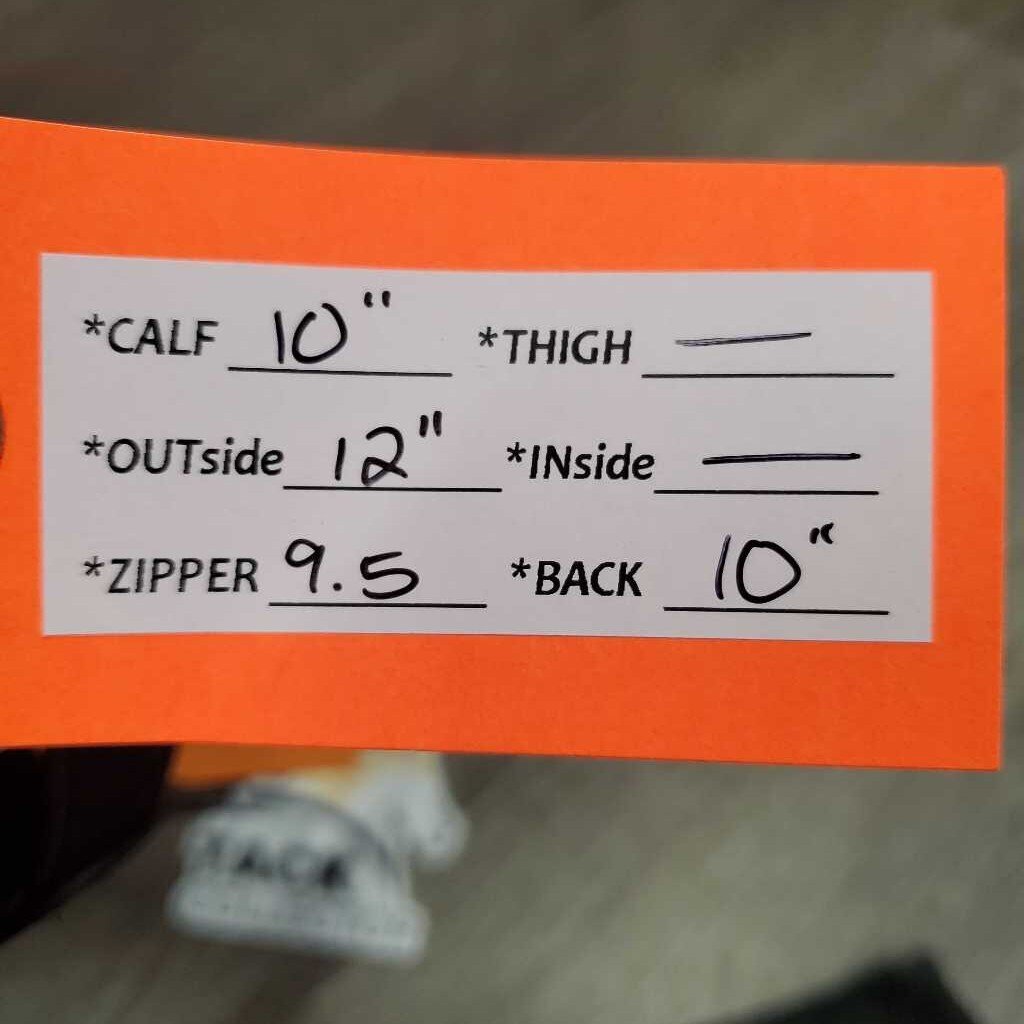 *CALF 10" *THIGH —
*OUTside 12" *INside —
*ZIPPER 9.5 *BACK 10"
TACK